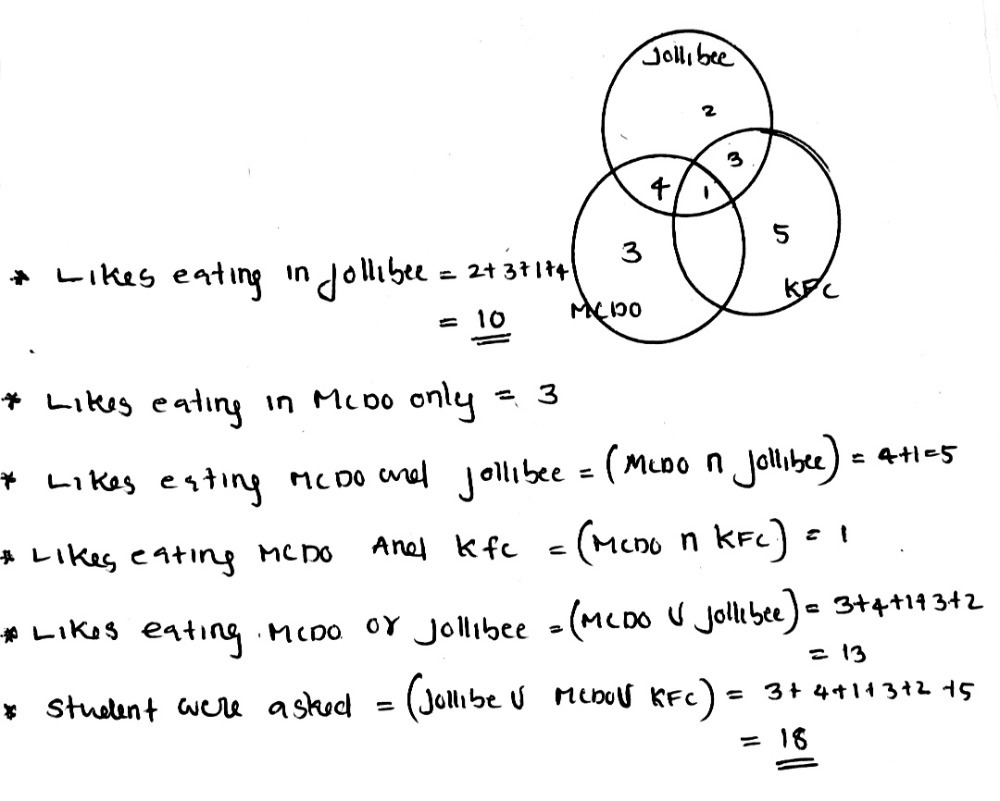 Jollibee
2
3
4
1
3
5
MCDO
KFC
* Likes eating in Jollibee = 2+3+1+4
= 10
* Likes eating in MCDO only = 3
* Likes eating MCDO and Jollibee = (MCDO ∩ Jollibee) = 4+1=5
* Likes eating MCDO And Kfc = (MCDO ∩ KFC) = 1
* Likes eating MCDO or Jollibee = (MCDO ∪ Jollibee) = 3+4+1+3+2
= 13
* Student were asked = (Jollibe ∪ MCDO∪ KFC) = 3+4+1+3+2+5
= 18